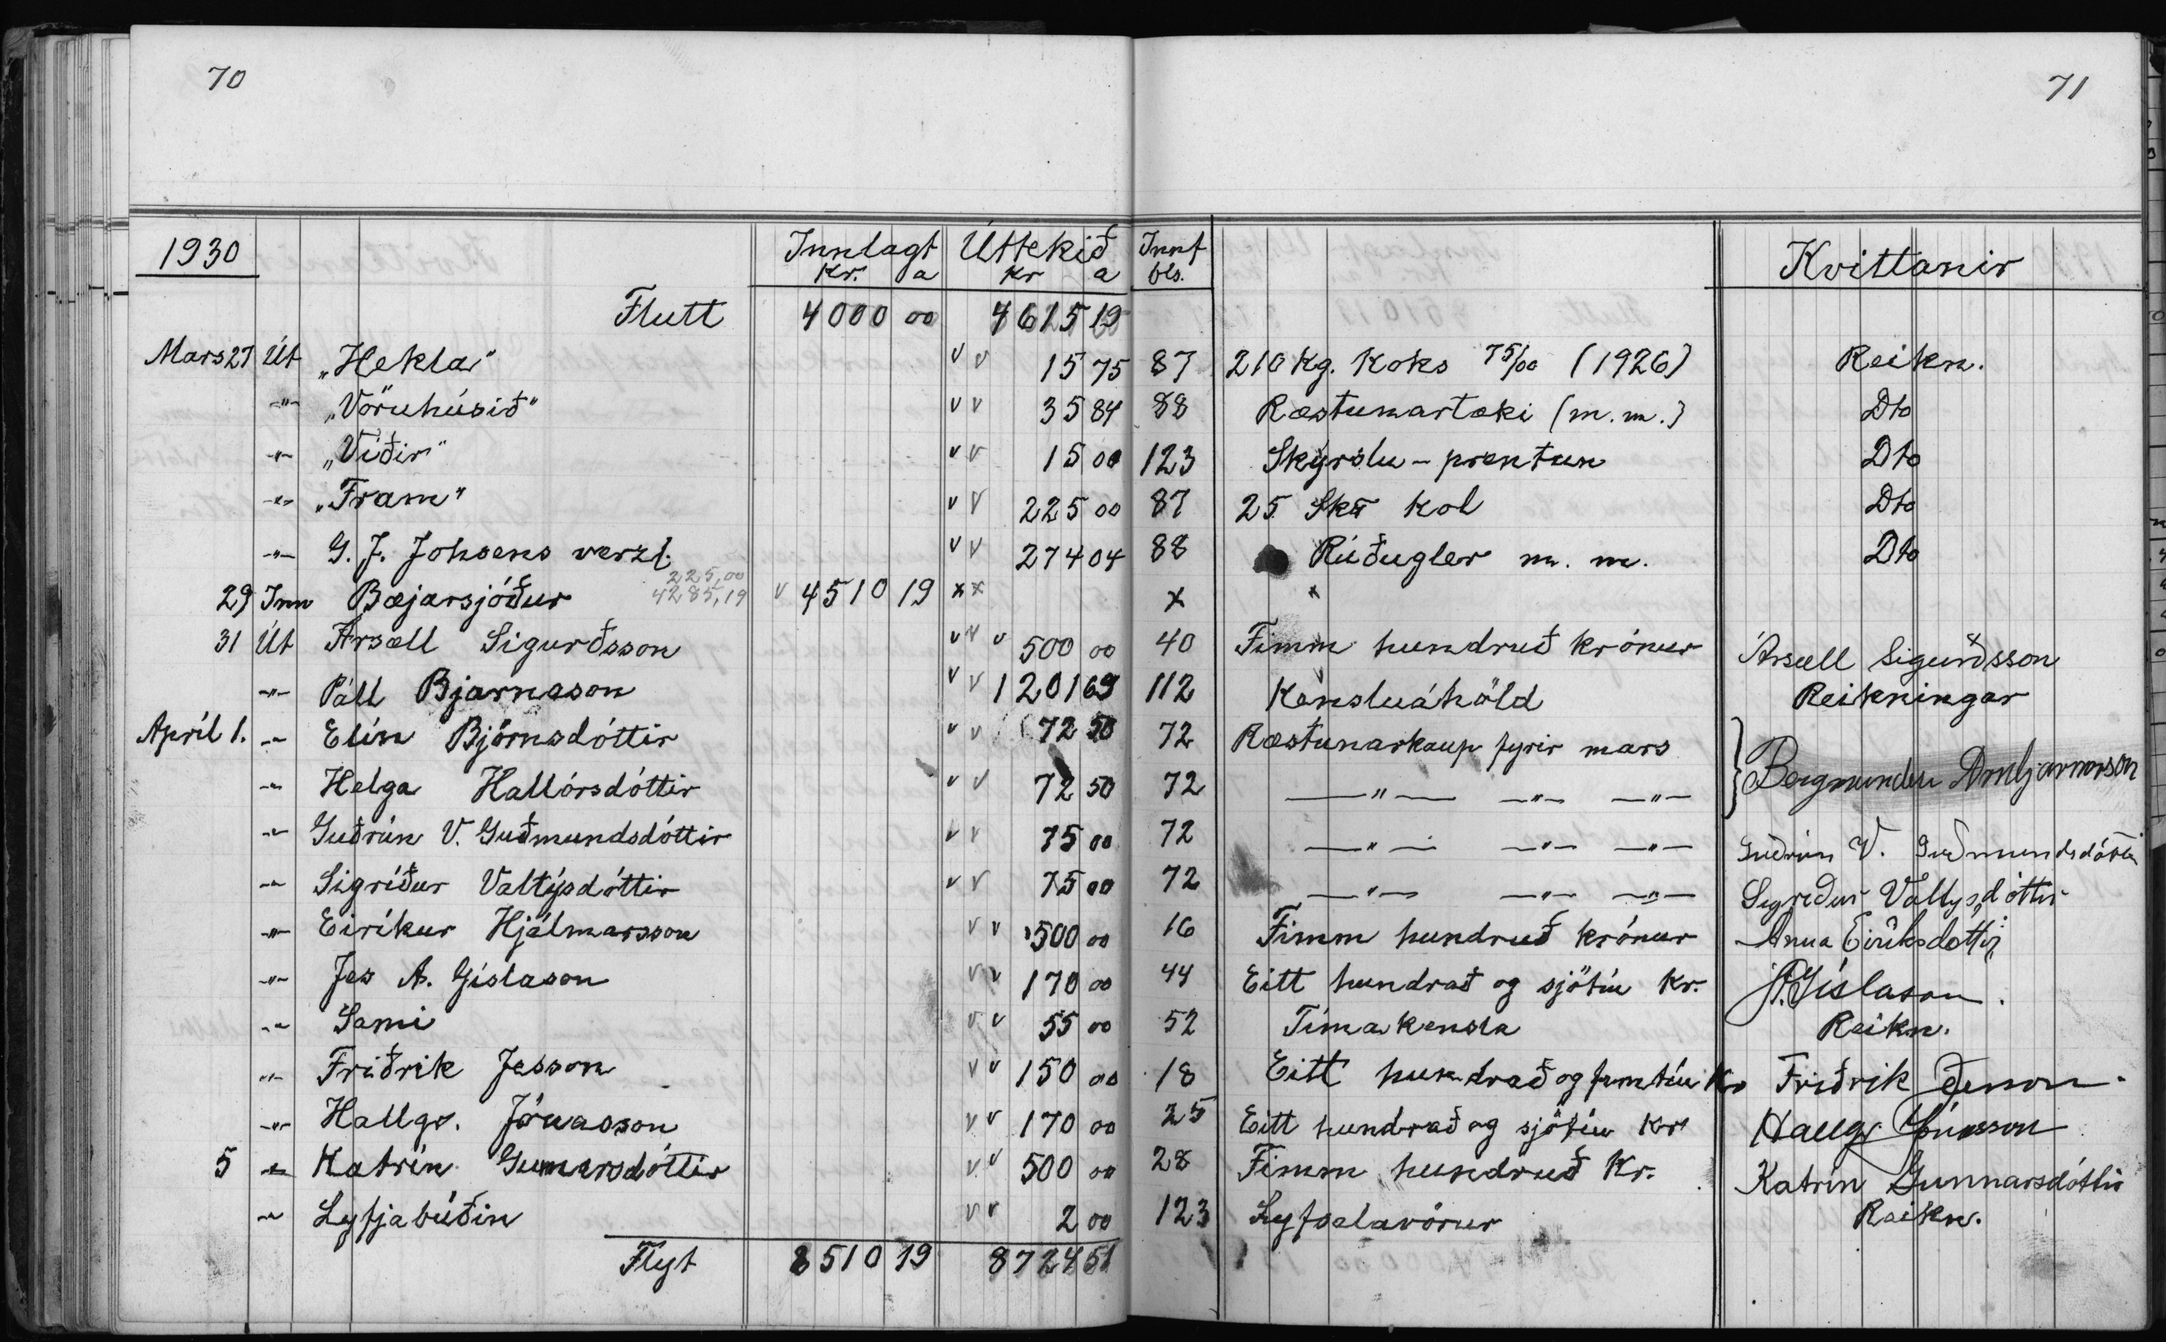 70
71
1930 Innlagt Úttekið Innf Kvittanir
kr. a kr a bls.
Flutt 4000 00 4615 19
Mars 27 Út „Hekla" v v 15 75 87 210 Kg. Koks 75/00 (1926) Reikn.
-"- „Vöruhúsið" v v 35 84 88 Ræstunartæki (m.m.) Dto
-"- „Víðir" v v 15 00 123 Skýrslu-prentun Dto
-"- „Fram" v v 225 00 87 25 Skp kol Dto
-"- G. J. Johsens verzl. v v 274 04 88 Rúðugler m. m. Dto
225,00
29 Inn Bæjarsjóður 4285,19 v 4510 19 x x x "
31 Út Ársæll Sigurðsson v v v 500 00 40 Fimm hundruð krónur Ársæll Sigurðsson
-"- Páll Bjarnason v v 1201 69 112 Kensluáhöld Reikningar
Apríl 1. -"- Elín Björnsdóttir v v 72 50 72 Ræstunarkaup fyrir mars
-"- Helga Hallórsdóttir v v 72 50 72 -"- -"- -"- } Bergmundur Arnbjarnarson
-"- Guðrún V. Guðmundsdóttir v v 75 00 72 -"- -"- -"- Guðrún V. Guðmundsdóttir
-"- Sigríður Valtýsdóttir v v 75 00 72 -"- -"- -"- Sigríður Valtýsdóttir
-"- Eiríkur Hjálmarsson v v 500 00 16 Fimm hundruð krónur Anna Eiríksdóttir
-"- Jes A. Gíslason v v 170 00 44 Eitt hundrað og sjötíu Kr. J.A. Gíslason.
-"- Sami v v 55 00 52 Tímakensla Reikn.
-"- Friðrik Jesson v v 150 00 18 Eitt hundrað og fimtíu Kr Friðrik Jesson.
-"- Hallgr. Jónasson v v 170 00 25 Eitt hundrað og sjötíu Kr Hallgr Jónasson
5 -"- Katrín Gunnarsdóttir v v 500 00 28 Fimm hundruð Kr. Katrín Gunnarsdóttir
-"- Lyfjabúðin v v 2 00 123 Lyfsalavörur Reikn.
Flyt 8510 19 8724 51